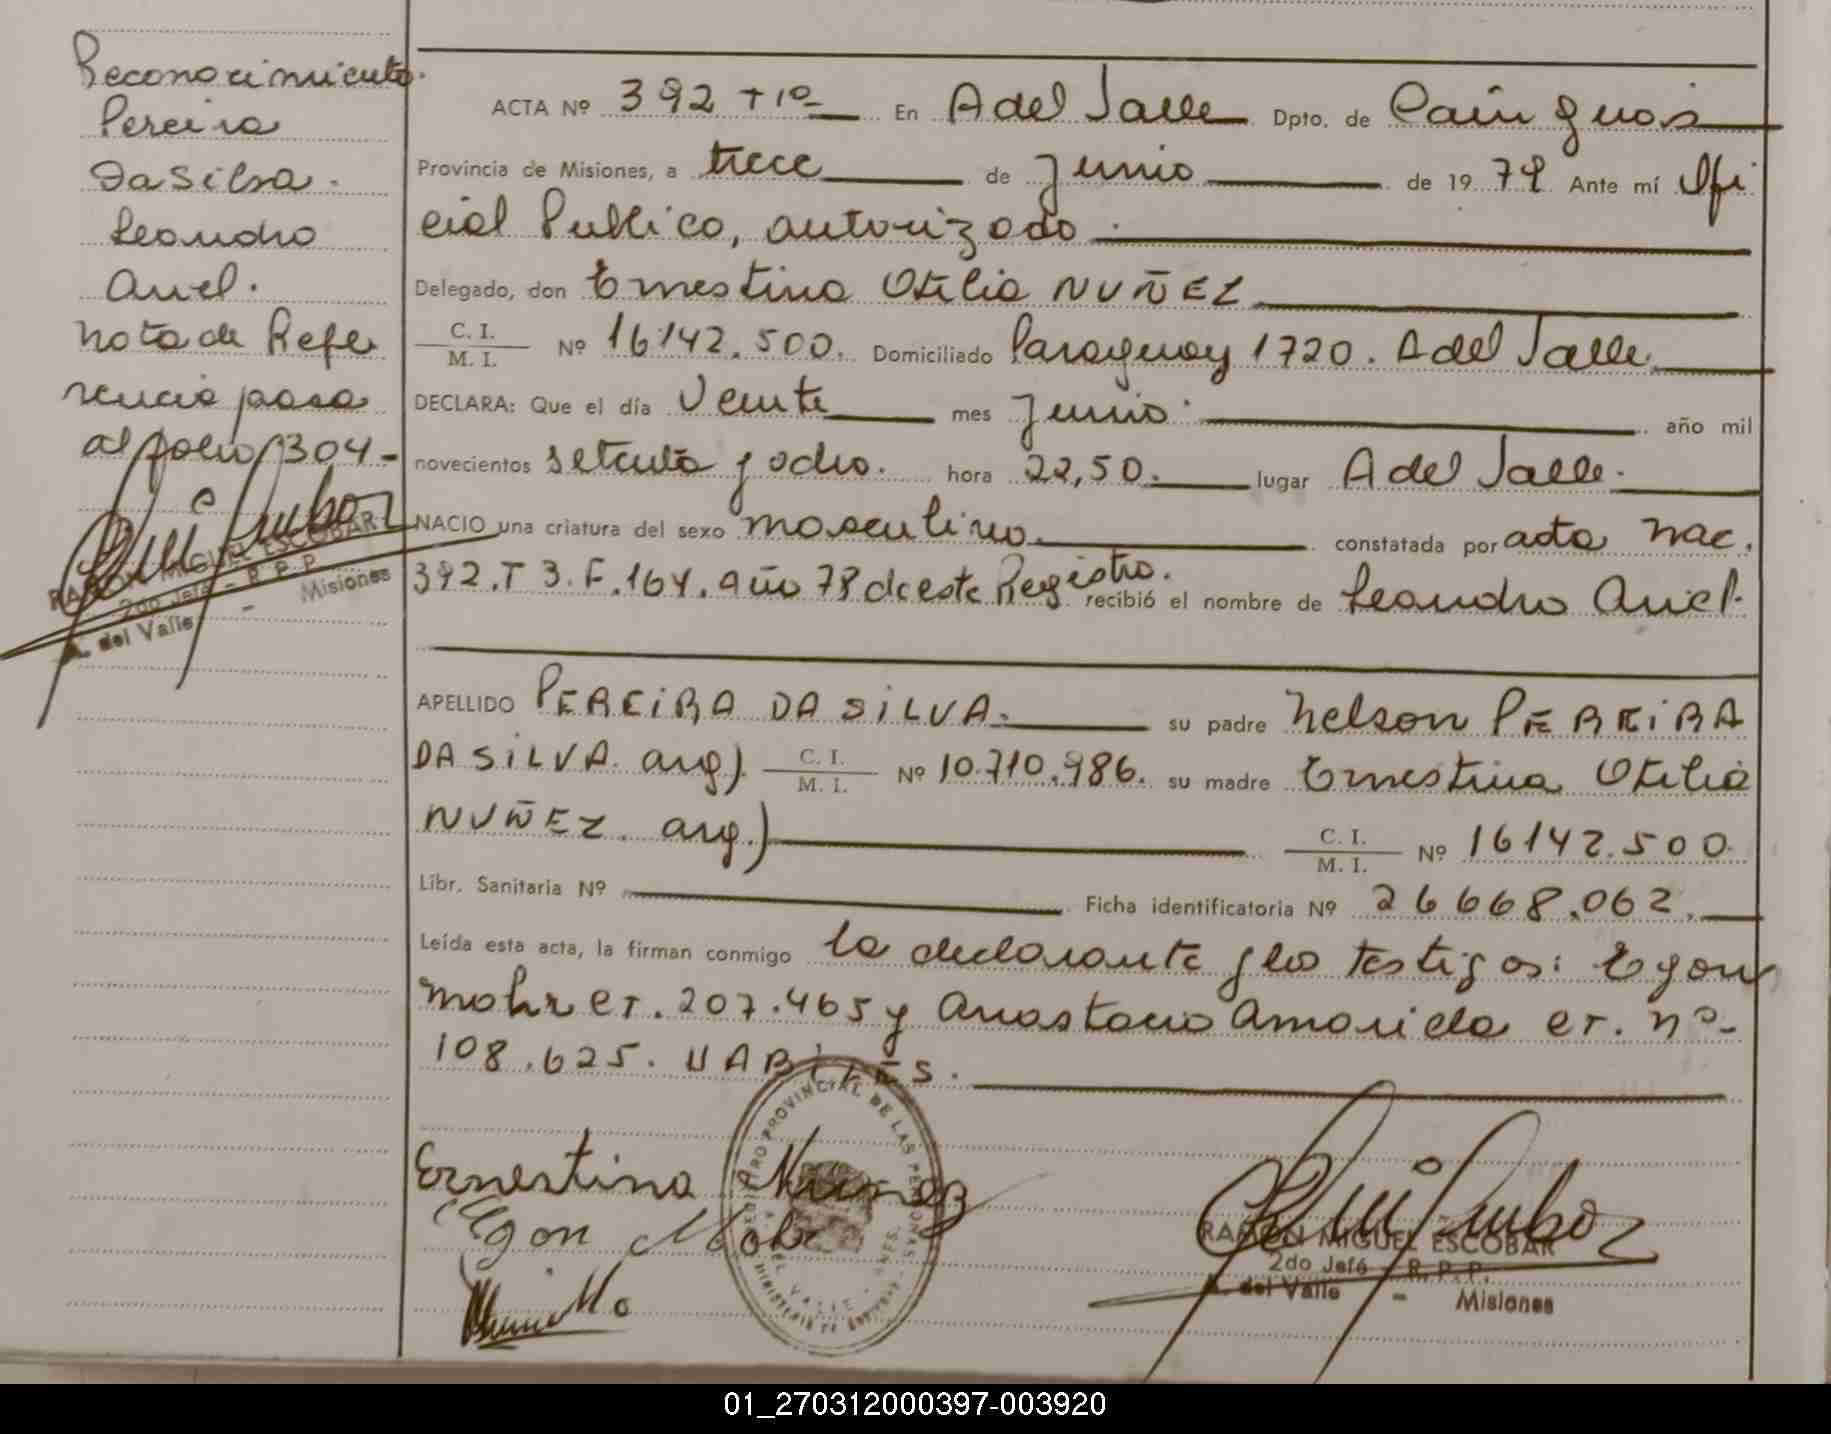 Reconocimiento.
Pereira
Da Silva.
Leandro
Ariel.
Nota de Refe
rencia pasa
al folio 304-
RAMON MIGUEL ESCOBAR
2do Jefe - R.P.P.
A. del Valle - Misiones
ACTA Nº 392 T 1º En A del Valle Dpto. de Cainguás
Provincia de Misiones, a trece de Junio de 1979 Ante mí Ofi
cial Publico, autorizado.
Delegado, don Ernestina Otilia NUÑEZ
C. I. / M. I. Nº 16142.500. Domiciliado Paraguay 1720. A del Valle.
DECLARA: Que el día Veinte mes Junio. año mil
novecientos setenta y ocho. hora 22,50. lugar A del Valle.
NACIO una criatura del sexo masculino. constatada por acta Nac.
392. T 3. F. 164. año 78 de este Registro. recibió el nombre de Leandro Ariel.
APELLIDO PEREIRA DA SILVA. su padre Nelson PEREIRA
DA SILVA. arg) C. I. / M. I. Nº 10.710.986. su madre Ernestina Otilia
NUÑEZ. arg.) C. I. / M. I. Nº 16142.500
Libr. Sanitaria Nº Ficha identificatoria Nº 26668.062.
Leída esta acta, la firman conmigo la declarante y los testigos: Egon
Mohr CT. 207.465 y Anastacio Amarilla CT. nº-
108.625. HABILES.
Ernestina Nuñez
Egon Mohr
REGISTRO PROVINCIAL DE LAS PERSONAS
RAMON MIGUEL ESCOBAR
2do Jefe - R.P.P.
A. del Valle - Misiones
01_270312000397-003920